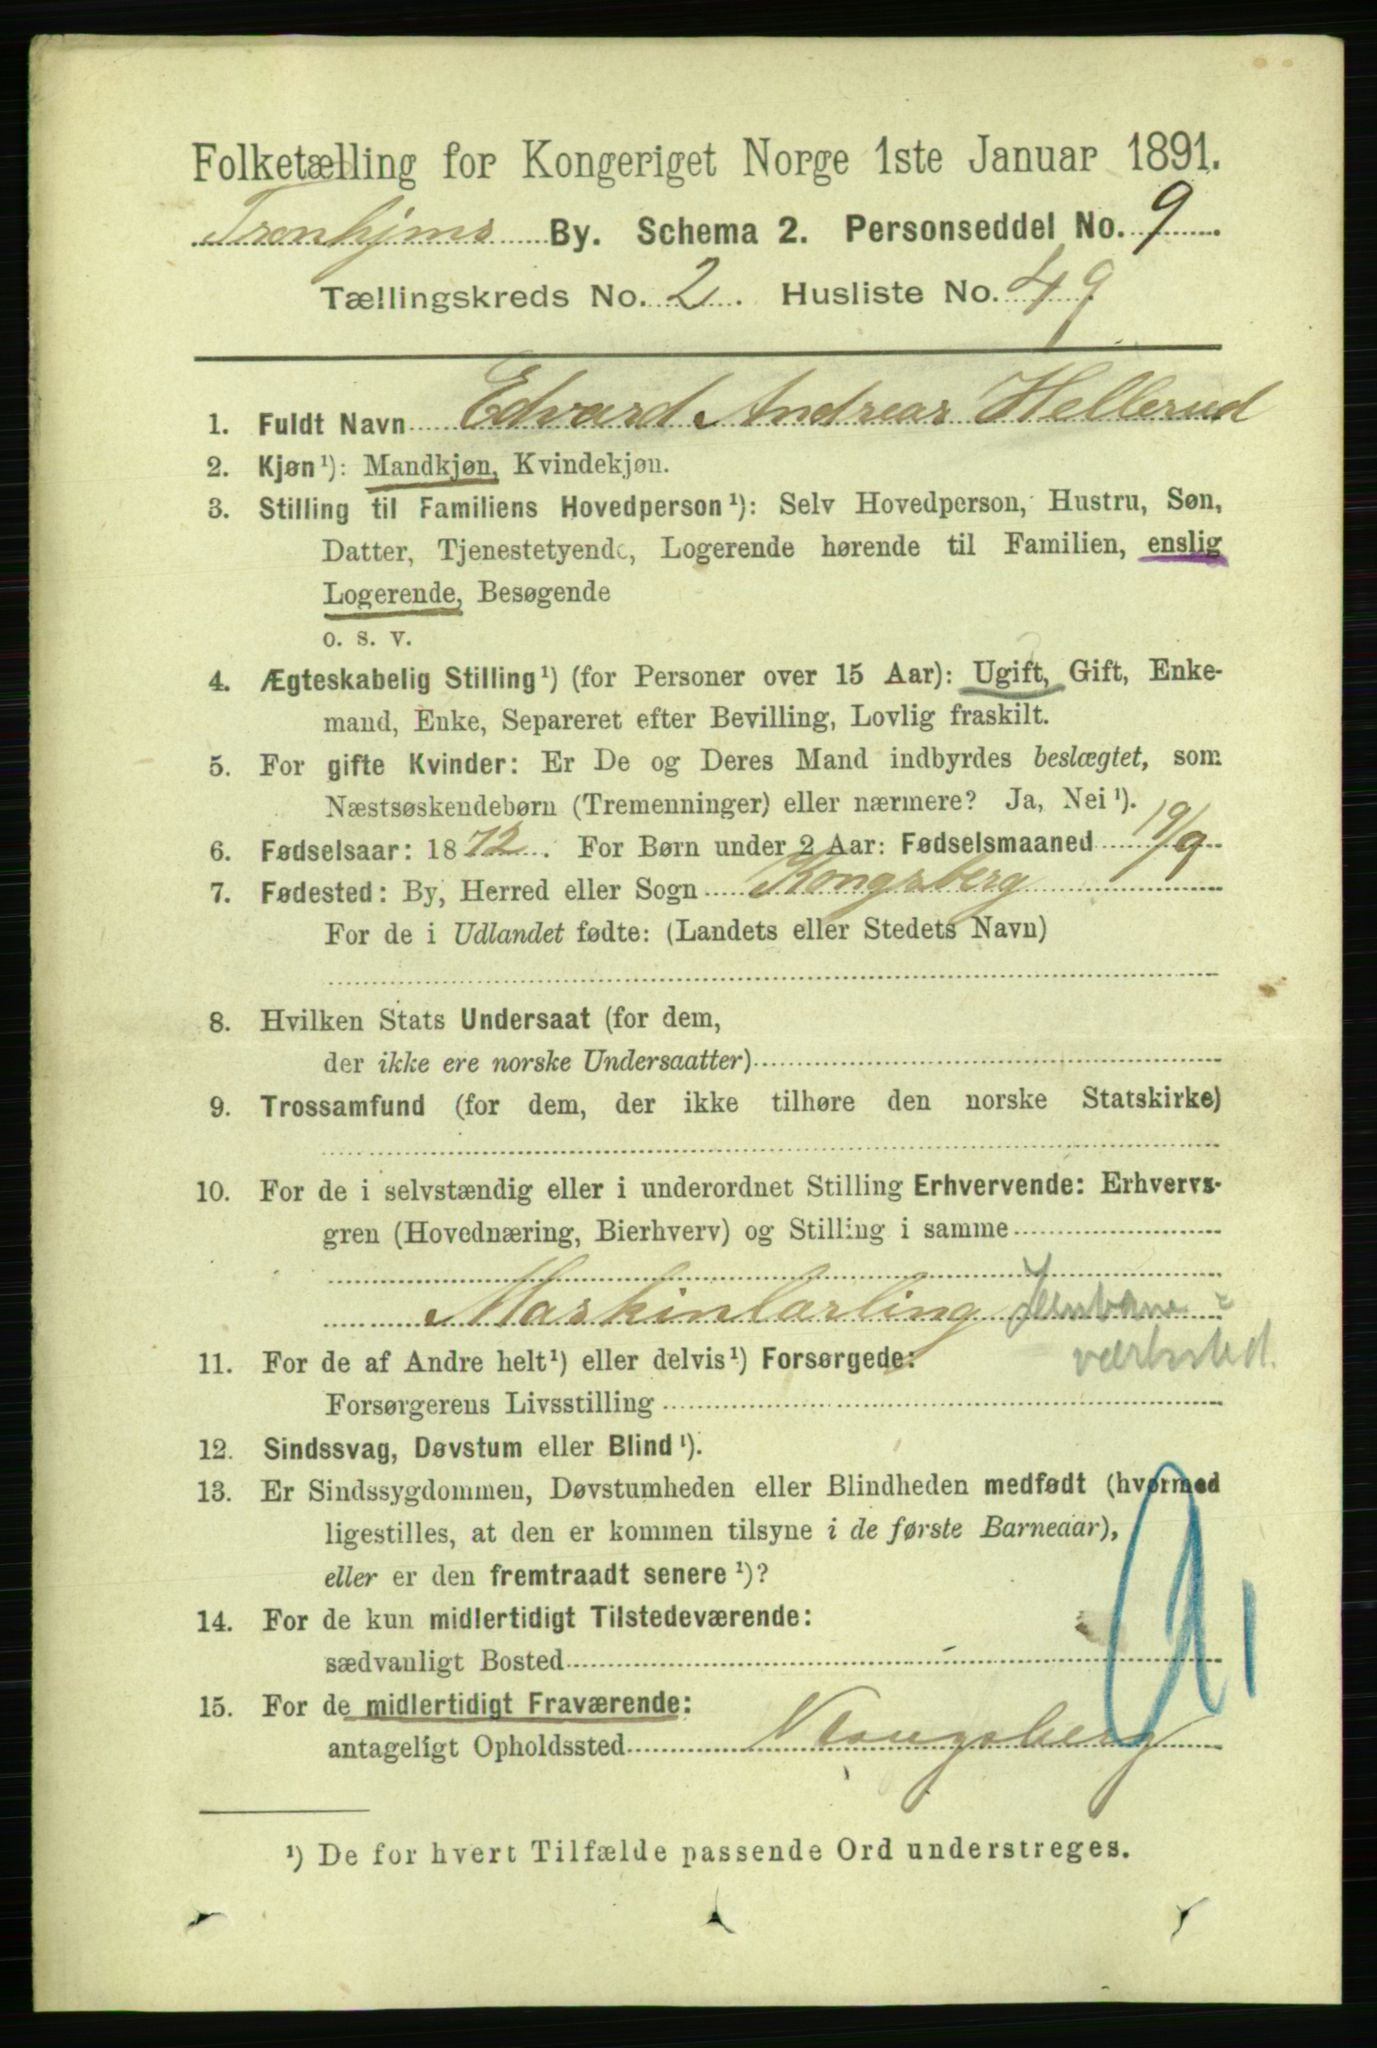 Folketælling for Kongeriget Norge 1ste Januar 1891.
Tronhjems By. Schema 2. Personseddel No. 9.
Tællingskreds No. 2. Husliste No. 49
1. Fuldt Navn Edvard Andreas Hellerud
2. Kjøn¹): Mandkjøn, Kvindekjøn.
3. Stilling til Familiens Hovedperson¹): Selv Hovedperson, Hustru, Søn,
Datter, Tjenestetyende, Logerende hørende til Familien, enslig
Logerende, Besøgende
o. s. v.
4. Ægteskabelig Stilling¹) (for Personer over 15 Aar): Ugift, Gift, Enke-
mand, Enke, Separeret efter Bevilling, Lovlig fraskilt.
5. For gifte Kvinder: Er De og Deres Mand indbyrdes beslægtet, som
Næstsøskendebørn (Tremenninger) eller nærmere? Ja, Nei¹).
6. Fødselsaar: 1872. For Børn under 2 Aar: Fødselsmaaned 19/9
7. Fødested: By, Herred eller Sogn Kongsberg
For de i Udlandet fødte: (Landets eller Stedets Navn)
8. Hvilken Stats Undersaat (for dem,
der ikke ere norske Undersaatter)
9. Trossamfund (for dem, der ikke tilhøre den norske Statskirke)
10. For de i selvstændig eller i underordnet Stilling Erhvervende: Erhvervs-
gren (Hovednæring, Bierhverv) og Stilling i samme
Maskinlærling Jernbane-
værksted.
11. For de af Andre helt¹) eller delvis¹) Forsørgede:
Forsørgerens Livsstilling
12. Sindssvag, Døvstum eller Blind¹).
13. Er Sindssygdommen, Døvstumheden eller Blindheden medfødt (hvormed
ligestilles, at den er kommen tilsyne i de første Barneaar),
eller er den fremtraadt senere¹)?
14. For de kun midlertidigt Tilstedeværende:
sædvanligt Bosted
15. For de midlertidigt Fraværende:
antageligt Opholdssted Kongsberg
¹) De for hvert Tilfælde passende Ord understreges.